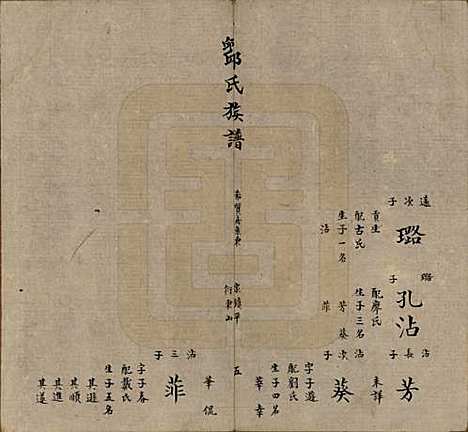 鄒氏族譜
五
遠次子
璐
貢生
配古氏
生子一名
沾
璐子
孔沾
配廖氏
生子三名
芳 葵
菲
沾長子
芳
未詳
沾次子
葵
字子遊
配劉氏
生子四名
華章
華侃
沾三子
菲
字子春
配戴氏
生子五名
其遊
其順
其進
其遂